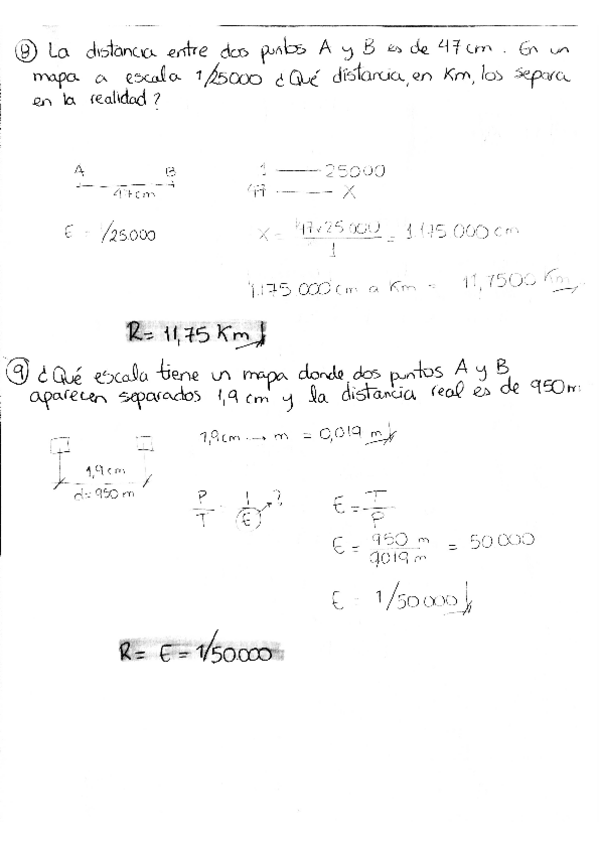 8 La distancia entre dos puntos A y B es de 47 cm. En un
mapa a escala 1/25000 ¿Qué distancia, en Km, los separa
en la realidad?
A B
47cm
1 —— 25000
47 —— X
E = 1/25.000
X = 47x25.000 / 1 = 1.175 000 cm
1.175 000 cm a Km = 11,7500 Km
R= 11,75 Km
9 ¿Qué escala tiene un mapa donde dos puntos A y B
aparecen separados 1,9 cm y la distancia real es de 950m.
1,9cm → m = 0,019 m
1,9 cm
d=950 m
P/T = 1/E → ?
E = T/P
E = 950 m / 0,019 m = 50 000
E = 1/50 000
R= E = 1/50.000